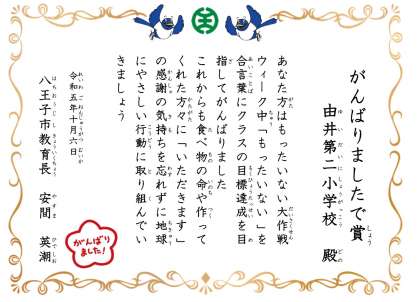 がんばりましたで賞
由井第二小学校 殿
あなた方はもったいない大作戦
ウィーク中「もったいない」を
合言葉にクラスの目標達成を目
指してがんばりました
これからも食べ物の命や作って
くれた方々に「いただきます」
の感謝の気持ちを忘れずに地球
にやさしい行動に取り組んでい
きましょう
令和五年十月六日
八王子市教育長 安間 英潮
がんばり
ました!